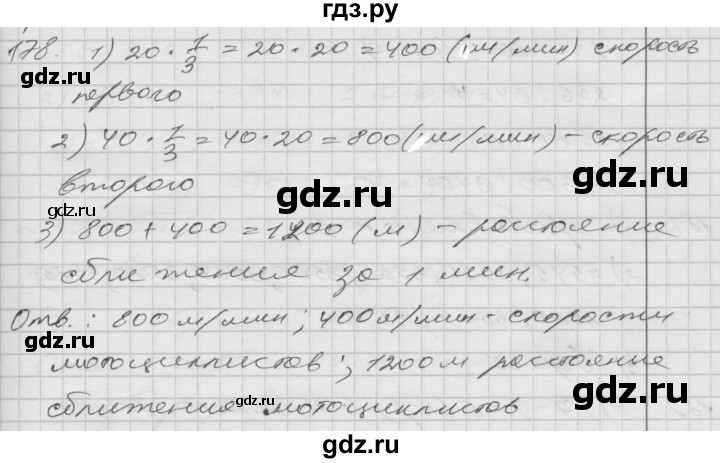 гдз.ру
178. 1) 20 · 1/3 = 20 · 20 = 400 (м/мин) скорость
первого
2) 40 · 1/3 = 40 · 20 = 800 (м/мин) – скорость
второго
gdz.ru
gdz.ru
3) 800 + 400 = 1200 (м) – расстояние
сближения за 1 мин.
gdz.ru
Отв.: 800 м/мин; 400 м/мин – скорости
gdz.ru
мотоциклистов; 1200 м расстояние
gdz.ru
сближения мотоциклистов
gdz.ru
gdz.ru